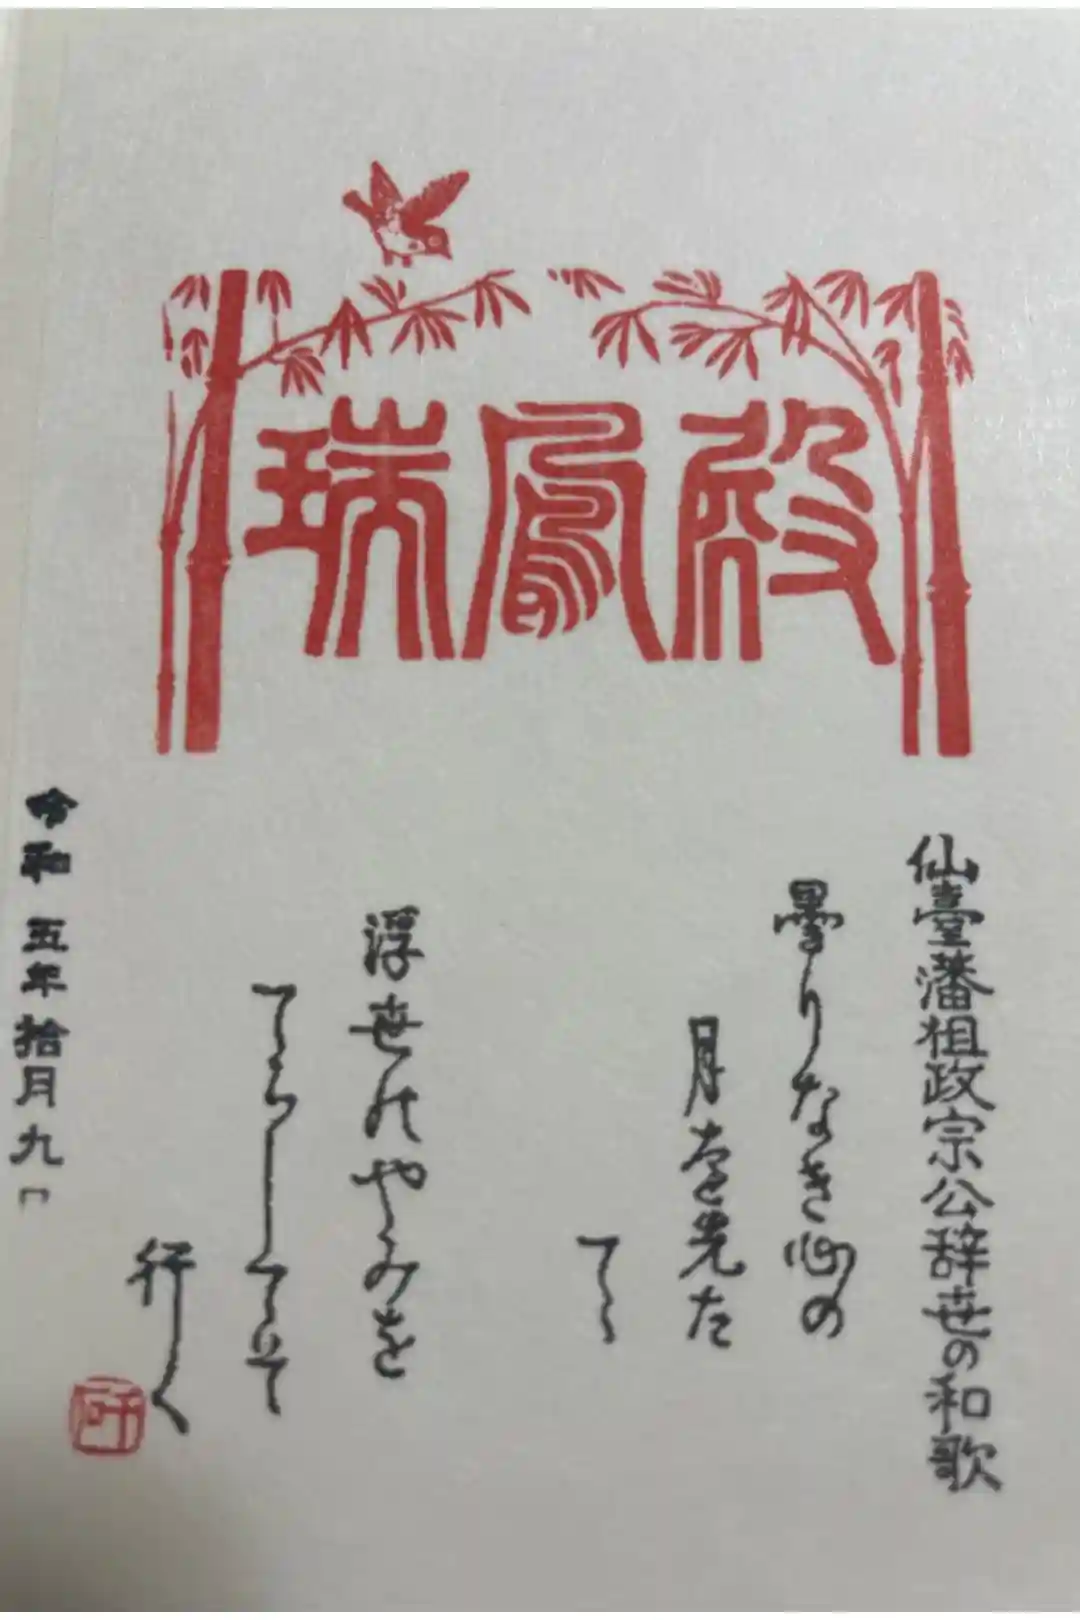 瑞鳳殿
仙臺藩祖政宗公辞世の和歌
曇りなき心の
月を先た
てゝ
浮世のやみを
てらしてそ
行く
令和 五年拾月九日